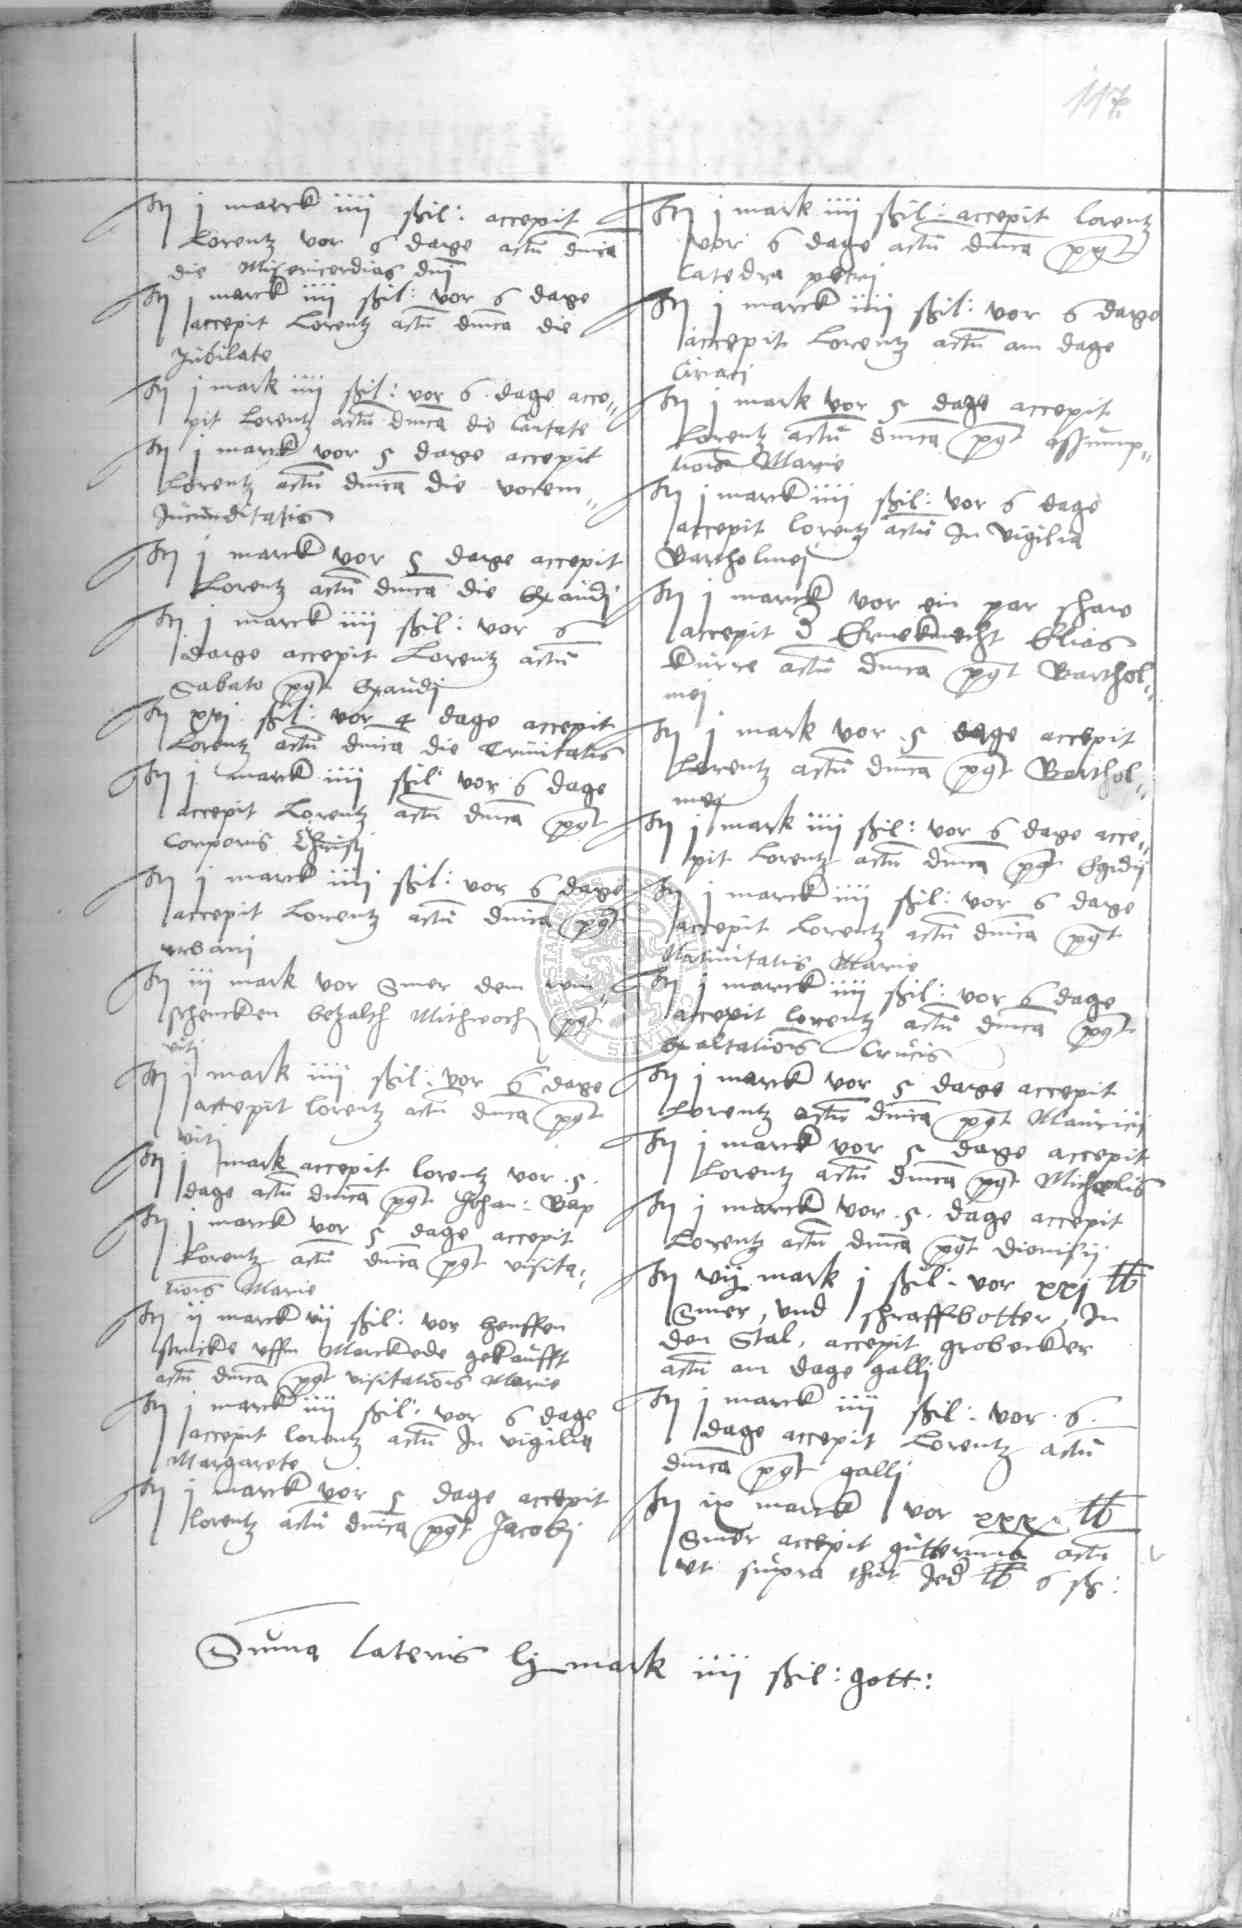 117
It j marck iiij ßil: accepit
Lorentz vor 6 dage actu dnica
die Misericordias dnj
It j marck iiij ßil: vor 6 dage
accepit Lorentz actu dnica die
Jubilate
It j mark iiij ßil: vor 6 dage acce„
pit Lorentz actu dnica die Cantate
It j marck vor 5 dage accepit
Lorentz actu dnica die vocem„
Jucunditatis
It j marck vor 5 dage accepit
Lorentz actu dnica die Exaudj
It j marck iiij ßil: vor 6
dage accepit Lorentz actu
Sabato pqt Exaudj
It xvj ßil: vor 4 dage accepit
Lorentz actu dnica die Trinitatis
It j marck iiij ßil vor 6 dage
accepit Lorentz actu dnica pqt
Corporis Christj
It j marck iiij ßil: vor 6 dage
accepit Lorentz actu dnica pqt
urbanj
It iij mark vor Smer dem
schencken bezalth Mithwoch pqt
vitj
It j mark iiij ßil: vor 6 dage
accepit lorentz actu dnica pqt
vitj
It j mark accepit lorentz vor .5.
dage actu dnica pqt Johan: Bap
It j marck vor 5 dage accepit
Lorentz actu dnica pqt visita„
tiois Marie
It ij marck vij ßil: vor henffen
stricke uffm Marckede gekaufft
actu dnica pqt visitatiois Marie
It j marck iiij ßil: vor 6 dage
accepit lorentz actu In vigilia
Margarete
It j marck vor 5 dage accepit
lorentz actu dnica pqt Jacobj
It j mark iiij ßil: accepit lorentz
vor 6 dage actu dnica pqt
Catedra petrj
It j marck iiij ßil: vor 6 dage
accepit Lorentz actu am dage
Ciriaci
It j mark vor 5 dage accepit
Lorentz actu dnica pqt assump„
tiois Marie
It j marck iiij ßil: vor 6 dage
accepit lorentz actu In vigilia
Bartholmej
It j marck vor ein par schwe
accepit d Elias
kurre actu dnica pqt Barthol„
mej
It j mark vor .5 dage accepit
Lorentz actu dnica pqt Barthol„
mej
It j mark iiij ßil: vor 6 dage acce„
pit Lorentz actu dnica pqt Egidij
It j marck iiij ßil: vor 6 dage
accepit Lorentz actu dnica pqt
Nativitatis Marie
It j marck iiij ßil: vor 6 dage
accepit lorentz actu dnica pqt
Exaltatiois Crucis
It j marck vor 5 dage accepit
Lorentz actu dnica pqt Mauricij
It j marck vor 5 dage accepit
Lorentz actu dnica pqt Michaelis
It j marck vor .5. dage accepit
Lorentz actu dnica pqt dionisij
It vij mark j ßil: vor xxj lb
Smer, vnd schraffbotter, In
den Stal, accepit grobecker
actu am dage gallj
It j marck iiij ßil: vor .6.
dage accepit Lorentz actu
dnica pqt gallj
It ix marck vor xxx lb
Smer accepit actu
ut supra thut Jed lb 6 ß:
Suma lateris lj mark iiij ßil: gott: